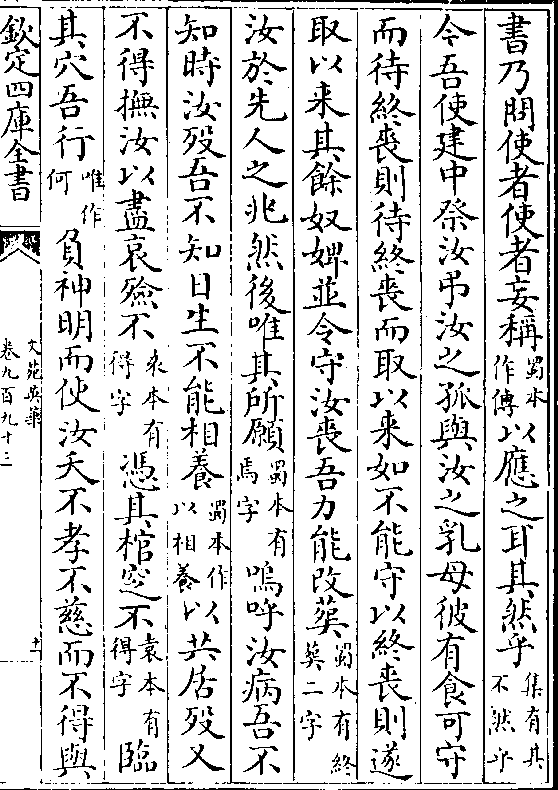 書乃問使者使者妄稱蜀本作傳以應之耳其然乎集有其不然乎
今吾使建中祭汝弔汝之孤與汝之乳母彼有食可守
而待終喪則待終喪而取以来如不能守以終喪則遂
取以来其餘奴婢並令守汝喪吾力能改葬蜀本有終葬二字
汝於先人之兆然後唯其所願蜀本有焉字嗚呼汝病吾不
知時汝殁吾不知日生不能相養蜀本作以相養以共居殁又
不得撫汝以盡哀殮不袁本有得字憑其棺窆不袁本有得字臨
其穴吾行唯作何負神明而使汝夭不孝不慈而不得與
欽定四庫全書
文苑英華
卷九百九十三
十